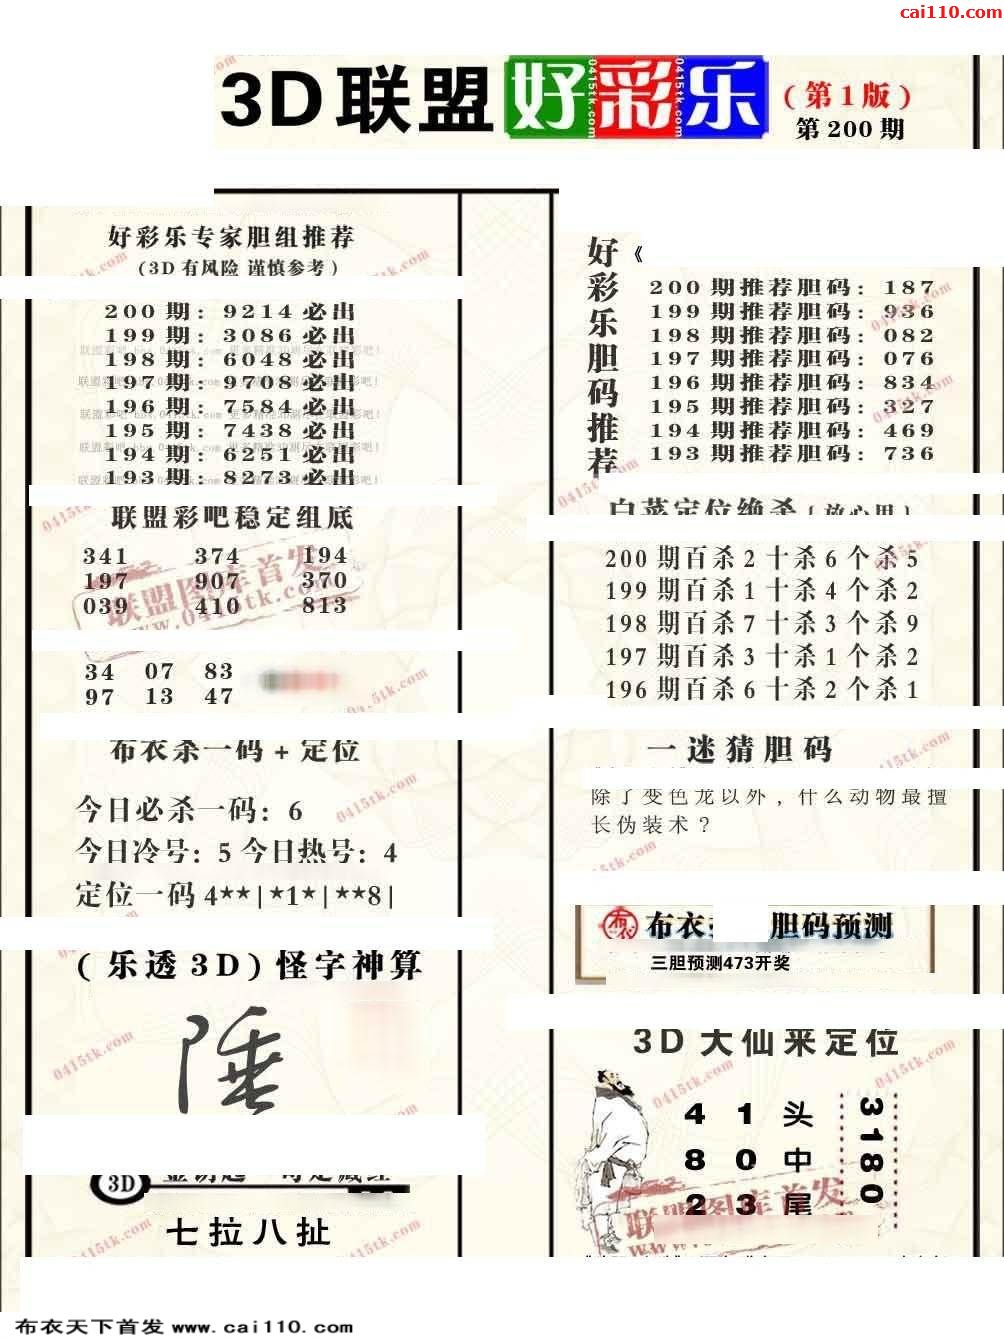 cai110.com
3D联盟好彩乐
(第1版)
第200期
好彩乐专家胆组推荐
(3D有风险 谨慎参考)
200期: 9214必出
199期: 3086必出
198期: 6048必出
197期: 9708必出
196期: 7584必出
195期: 7438必出
194期: 6251必出
193期: 8273必出
联盟彩吧稳定组底
341 374 194
197 907 370
039 410 813
34 07 83
97 13 47
布衣杀一码+定位
今日必杀一码: 6
今日冷号: 5 今日热号: 4
定位一码4**|*1*|**8|
(乐透3D)怪字神算
陲
3D
七拉八扯
好彩乐胆码推荐
《
200期推荐胆码: 187
199期推荐胆码: 936
198期推荐胆码: 082
197期推荐胆码: 076
196期推荐胆码: 834
195期推荐胆码: 327
194期推荐胆码: 469
193期推荐胆码: 736
白菜定位绝杀
200期百杀2十杀6个杀5
199期百杀1十杀4个杀2
198期百杀7十杀3个杀9
197期百杀3十杀1个杀2
196期百杀6十杀2个杀1
一迷猜胆码
除了变色龙以外，什么动物最擅
长伪装术？
布衣 胆码预测
三胆预测473开奖
3D大仙来定位
4 1 头
8 0 中
2 3 尾
3180
联盟图库首发
www.0415tk.com
布衣天下首发 www.cai110.com